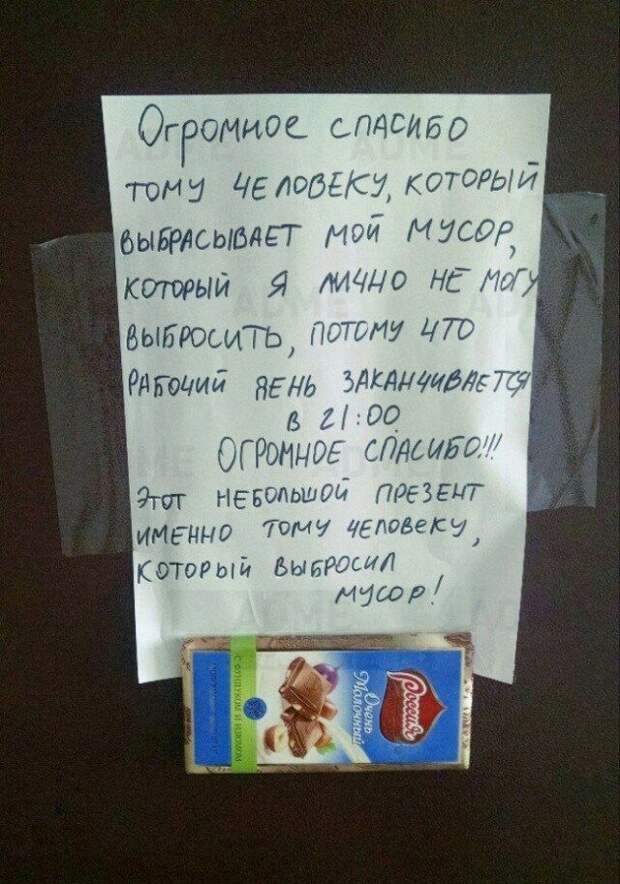 Огромное спасибо
тому человеку, который
выбрасывает мой мусор,
который я лично не могу
выбросить, потому что
рабочий день заканчивается
в 21:00.
Огромное спасибо!!!
Этот небольшой презент
именно тому человеку,
который выбросил
мусор!
Россия
Очень
Молочный
с фундуком и изюмом
ADME